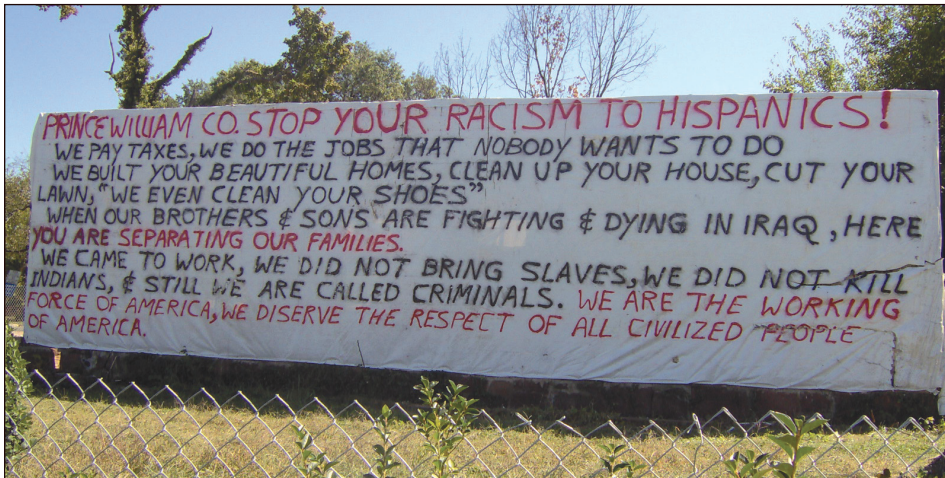 PRINCE WILLIAM CO. STOP YOUR RACISM TO HISPANICS!
WE PAY TAXES, WE DO THE JOBS THAT NOBODY WANTS TO DO
WE BUILT YOUR BEAUTIFUL HOMES, CLEAN UP YOUR HOUSE, CUT YOUR
LAWN, "WE EVEN CLEAN YOUR SHOES"
WHEN OUR BROTHERS & SONS ARE FIGHTING & DYING IN IRAQ, HERE
YOU ARE SEPARATING OUR FAMILIES.
WE CAME TO WORK, WE DID NOT BRING SLAVES, WE DID NOT KILL
INDIANS, & STILL WE ARE CALLED CRIMINALS. WE ARE THE WORKING
FORCE OF AMERICA, WE DISERVE THE RESPECT OF ALL CIVILIZED PEOPLE
OF AMERICA.